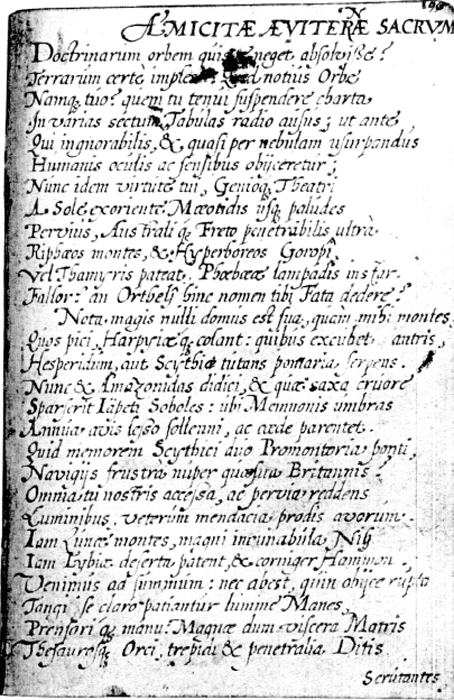 190
ÆMICITÆ ÆVITERNÆ SACRVM
Doctrinarum orbem quis neget absolvisse?
Terrarum certe notius Orbe
Namq, tuo? quem tu tenui suspendere charta
In varias sectum Tabulas radio ausus; ut ante
Qui ingnorabilis, & quasi per nebulam usurpandus
Humanis oculis ac sensibus obijceretur;
Nunc idem virtute tui, Genioq, Theatri
A Sole exoriente Mæotidis usq, paludes
Pervius, Australi q, Freto penetrabilis ultra
Riphæos montes, & Hyperboreos Goropi,
Vel Thamyris pateat. Phœbeæ lampadis instar.
Fallor? an Orthelj hinc nomen tibi Fata dedere?
Nota magis nulli domus est sua, quam mihi montes
Quos pici, Harpyiæ q, colant: quibus excubet antris,
Hesperidum, aut Scythiæ tutans pomaria serpens.
Nunc & Amazonidas didici, & quæ saxa cruore
Sparserit Iapeti Soboles: ubi Memnonis umbras
Annua avis solenni, ac cæde parentet.
Quid memorem Scythici duo Promontoria ponti,
Navigijs frustra nuper quæsita Britannis?
Omnia tu nostris accessa, ac pervia reddens
Luminibus, veterum mendacia prodis avorum.
Iam Lunæ montes, magni incunabula Nilj
Iam Lybiæ deserta patent, & corniger Hammon.
Venimus ad summum: nec abest, quin obijce rupto
Tangi se claro patiantur lumine Manes,
Prensori q, manu: Magnæ dum viscera Matris
Thesaurosq, Orci, trepidi & penetralia Ditis
Scrutantes